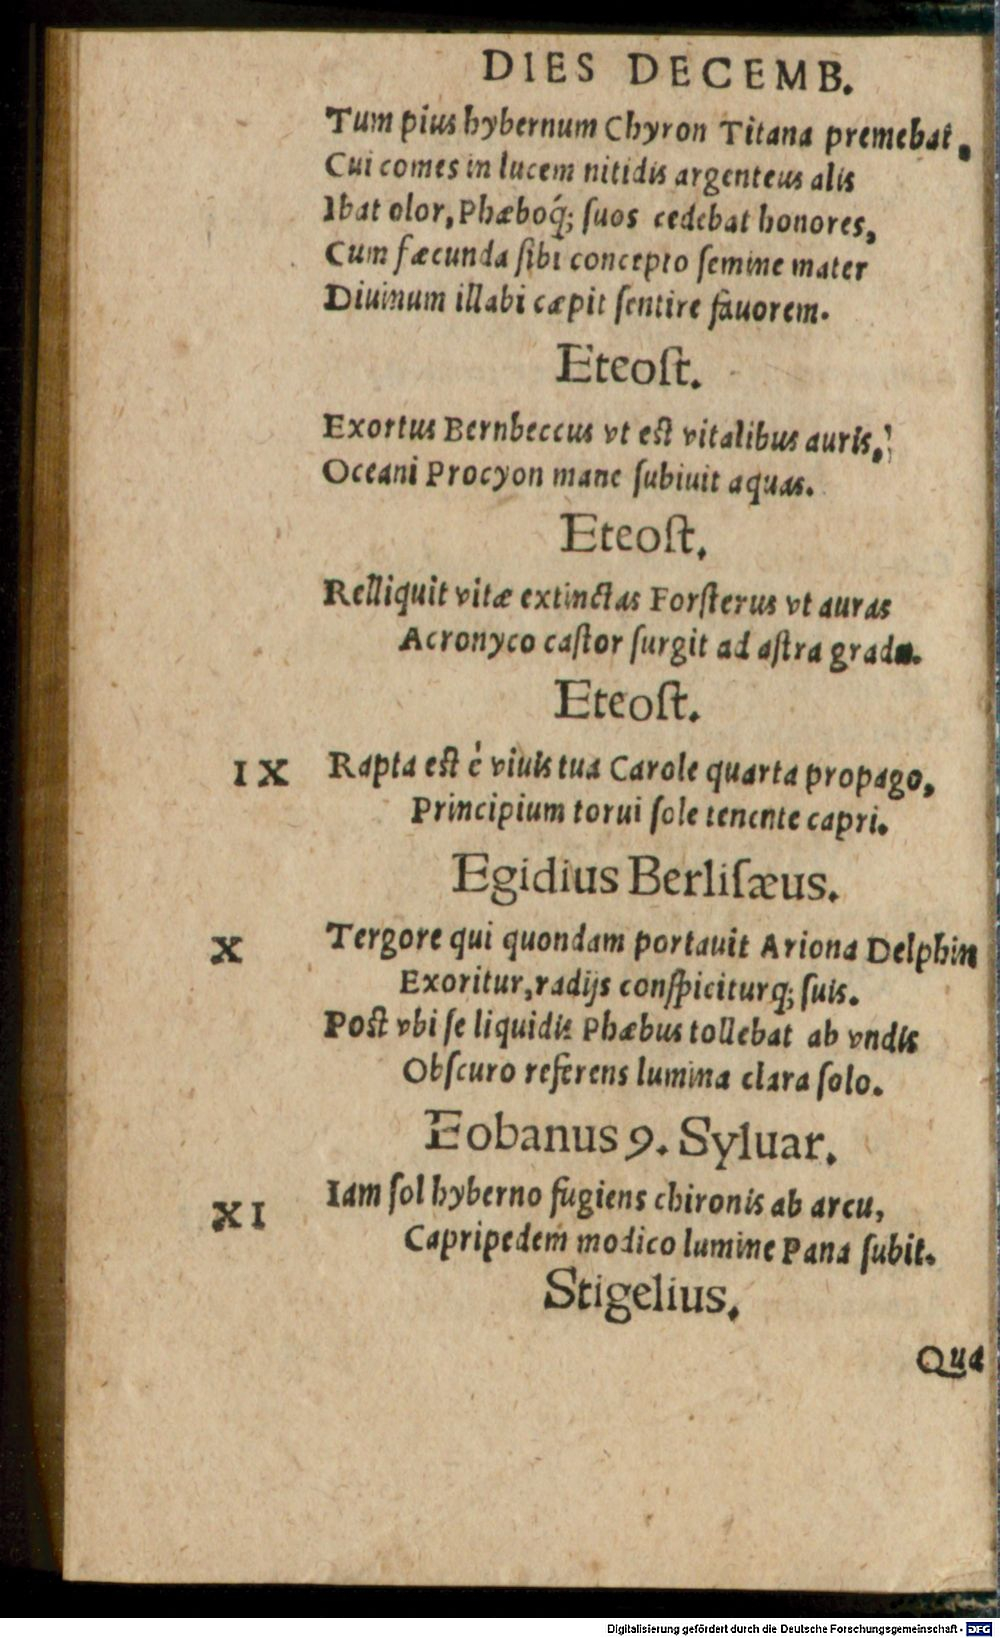 DIES DECEMB.
Tum pius hybernum Chyron Titana premebat,
Cui comes in lucem nitidis argenteus alis
Ibat olor, Phæboq́; ſuos cedebat honores,
Cum fæcunda ſibi concepto ſemine mater
Diuinum illabi cæpit ſentire fauorem.
Eteoſt.
Exortus Bernbeccus vt eſt vitalibus auris,
Oceani Procyon mane ſubiuit aquas.
Eteoſt.
Relliquit vitæ extinctas Forſterus vt auras
Acronyco caſtor ſurgit ad aſtra gradu.
Eteoſt.
IX Rapta eſt è viuis tua Carole quarta propago,
Principium torui ſole tenente capri.
Egidius Berliſæus.
X Tergore qui quondam portauit Ariona Delphin
Exoritur, radijs conſpiciturq; ſuis.
Poſt vbi ſe liquidis Phæbus tollebat ab vndis
Obſcuro referens lumina clara ſolo.
Eobanus 9. Syluar.
XI Iam ſol hyberno fugiens chironis ab arcu,
Capripedem modico lumine Pana ſubit.
Stigelius.
Qua
Digitalisierung gefördert durch die Deutsche Forschungsgemeinschaft - DFG